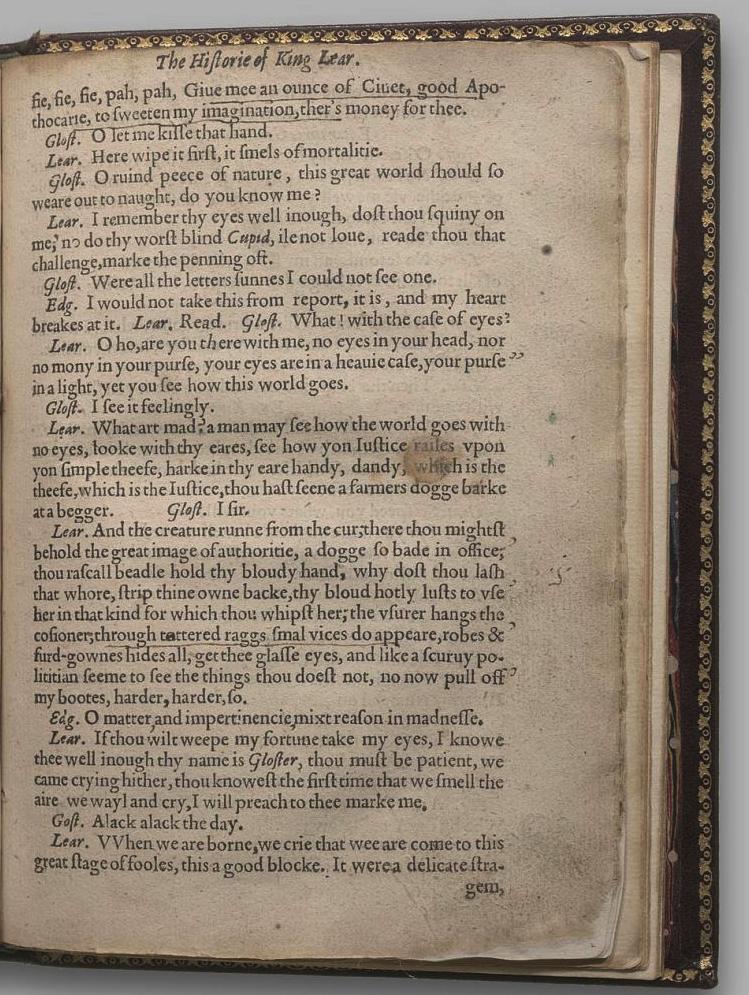 The Hiſtorie of King Lear.
fie, fie, fie, pah, pah, Giue mee an ounce of Ciuet, good Apo-
thocarie, to ſweeten my imagination,ther's money for thee.
Gloſt. O let me kiſſe that hand.
Lear. Here wipe it firſt, it ſmels of mortalitie.
Gloſt. O ruind peece of nature, this great world ſhould ſo
weare out to naught, do you know me?
Lear. I remember thy eyes well inough, doſt thou ſquiny on
me, no do thy worſt blind Cupid, ile not loue, reade thou that
challenge,marke the penning oft.
Gloſt. Were all the letters ſunnes I could not ſee one.
Edg. I would not take this from report, it is, and my heart
breakes at it. Lear. Read. Gloſt. What! with the caſe of eyes?
Lear. O ho,are you there with me, no eyes in your head, nor
no mony in your purſe, your eyes are in a heauie caſe,your purſe
in a light, yet you ſee how this world goes.
Gloſt. I ſee it feelingly.
Lear. What art mad? a man may ſee how the world goes with
no eyes, looke with thy eares, ſee how yon Iuſtice railes vpon
yon ſimple theefe, harke in thy eare handy, dandy, which is the
theefe,which is the Iuſtice,thou haſt ſeene a farmers dogge barke
at a begger. Gloſt. I ſir.
Lear. And the creature runne from the cur;there thou mightſt
behold the great image of authoritie, a dogge ſo bade in office;
thou raſcall beadle hold thy bloudy hand, why doſt thou laſh
that whore, ſtrip thine owne backe,thy bloud hotly luſts to vſe
her in that kind for which thou whipſt her; the vſurer hangs the
coſioner;through tattered raggs ſmal vices do appeare,robes &
furd-gownes hides all, get thee glaſſe eyes, and like a ſcuruy po-
lititian ſeeme to ſee the things thou doeſt not, no now pull off
my bootes, harder, harder, ſo.
Edg. O matter,and impertinencie,mixt reaſon in madneſſe.
Lear. If thou wilt weepe my fortune take my eyes, I knowe
thee well inough thy name is Gloſter, thou muſt be patient, we
came crying hither, thou knoweſt the firſt time that we ſmell the
aire we wayl and cry,I will preach to thee marke me,
Goſt. Alack alack the day.
Lear. VVhen we are borne,we crie that wee are come to this
great ſtage of fooles, this a good blocke. It were a delicate ſtra-
gem,